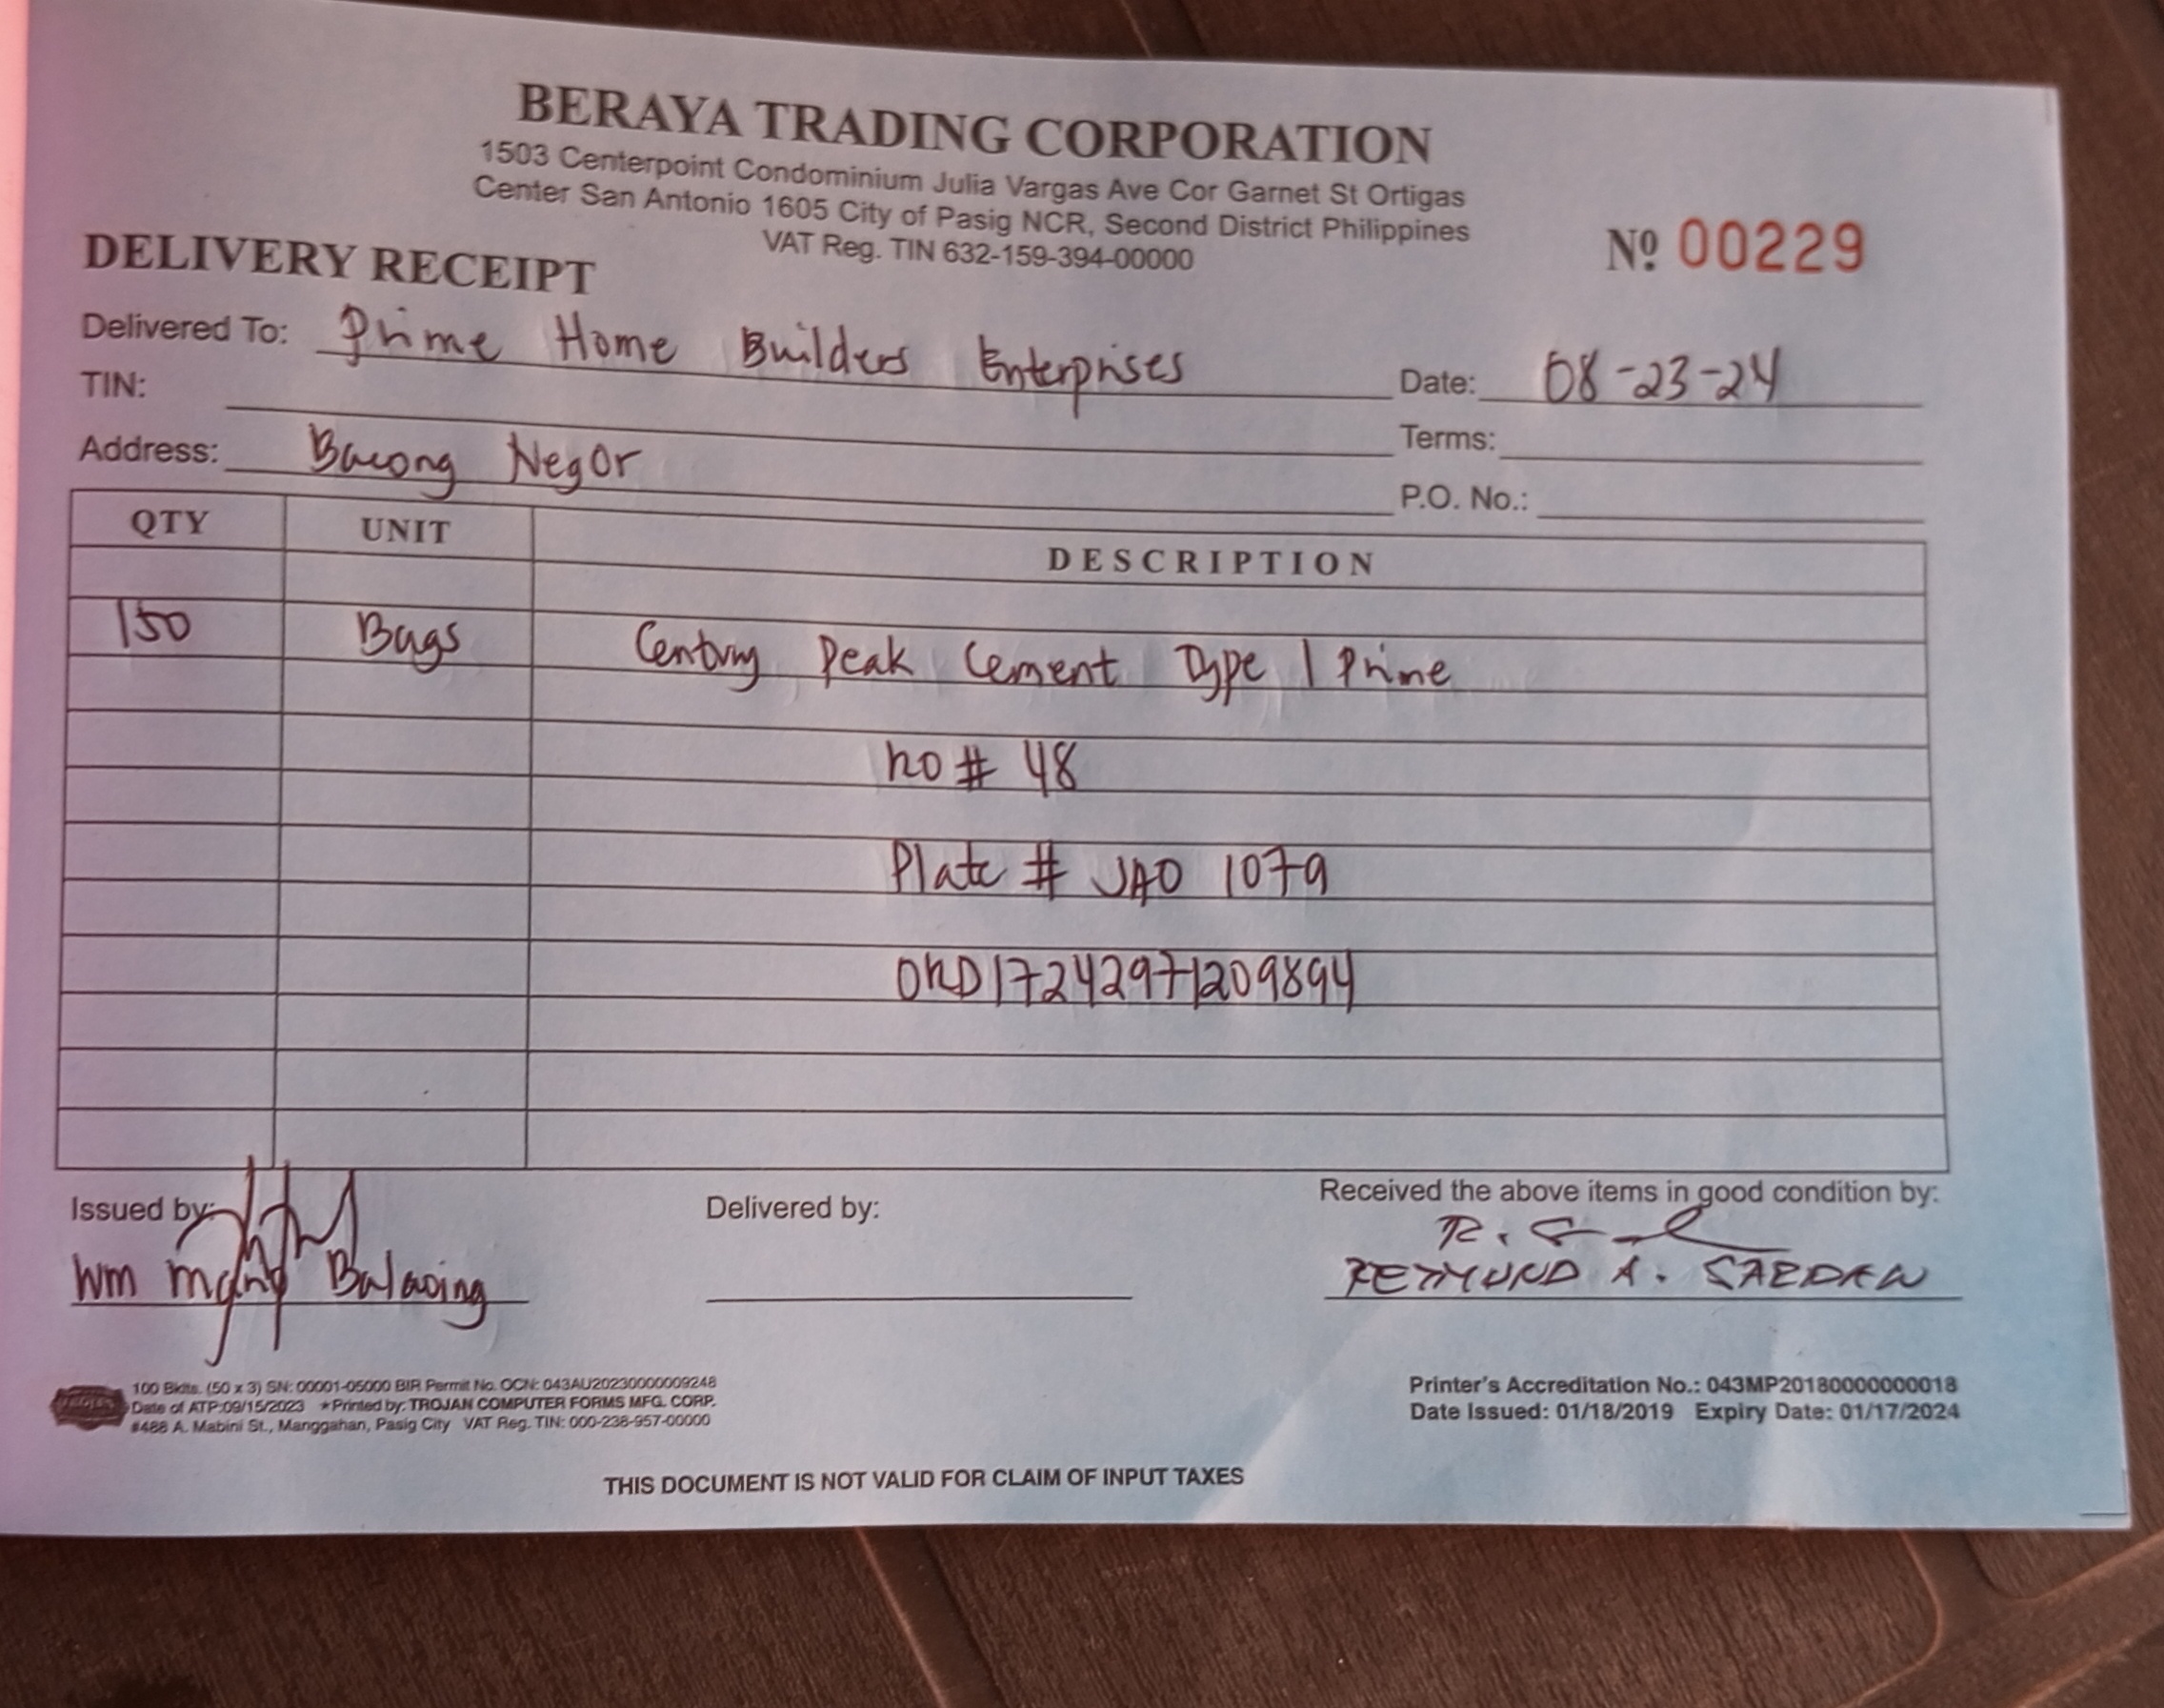 BERAYA TRADING CORPORATION
1503 Centerpoint Condominium Julia Vargas Ave Cor Garnet St Ortigas
Center San Antonio 1605 City of Pasig NCR, Second District Philippines
VAT Reg. TIN 632-159-394-00000
DELIVERY RECEIPT
Nº 00229
Delivered To: Prime Home Builders Enterprises
Date: 08-23-24
TIN:
Terms:
Address: Bacong NegOr
P.O. No.:
QTY UNIT DESCRIPTION
150 Bags Century Peak Cement Type 1 Prime
RO # 48
Plate # JAO 1079
ORD17242971209894
Issued by:
Delivered by:
Received the above items in good condition by:
Wm Balaoing
REYMUND A. SARDAN
100 Bklts. (50 x 3) SN: 00001-05000 BIR Permit No. OCN: 043AU20230000009248
Date of ATP:09/15/2023 *Printed by: TROJAN COMPUTER FORMS MFG. CORP.
#488 A. Mabini St., Manggahan, Pasig City VAT Reg. TIN: 000-238-957-00000
Printer's Accreditation No.: 043MP20180000000018
Date Issued: 01/18/2019 Expiry Date: 01/17/2024
THIS DOCUMENT IS NOT VALID FOR CLAIM OF INPUT TAXES